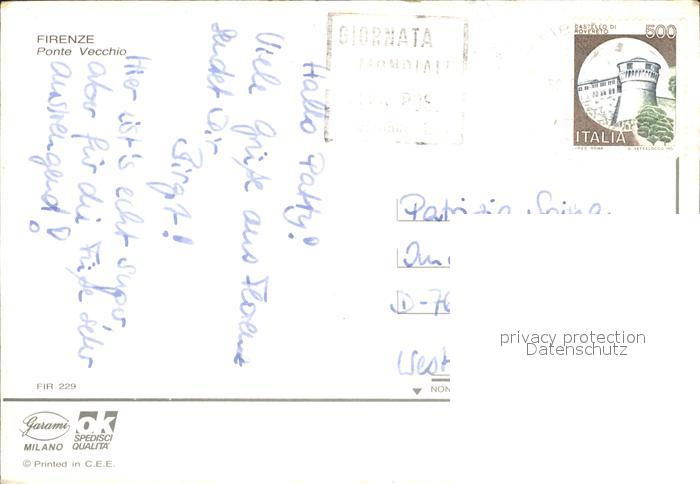 FIRENZE
Ponte Vecchio
Hallo Patty!
Viele Grüße aus Florenz
sendet Dir
Birgit!
Hier ist's echt super
aber für die Füße sehr
anstrengend!
GIORNATA
MONDIALE
CASTELLO DI
ROVERETO
500
ITALIA
Patrizia
D-76
West
privacy protection
Datenschutz
NON
FIR 229
Garami
MILANO
ok
SPEDISCI
QUALITA'
© Printed in C.E.E.